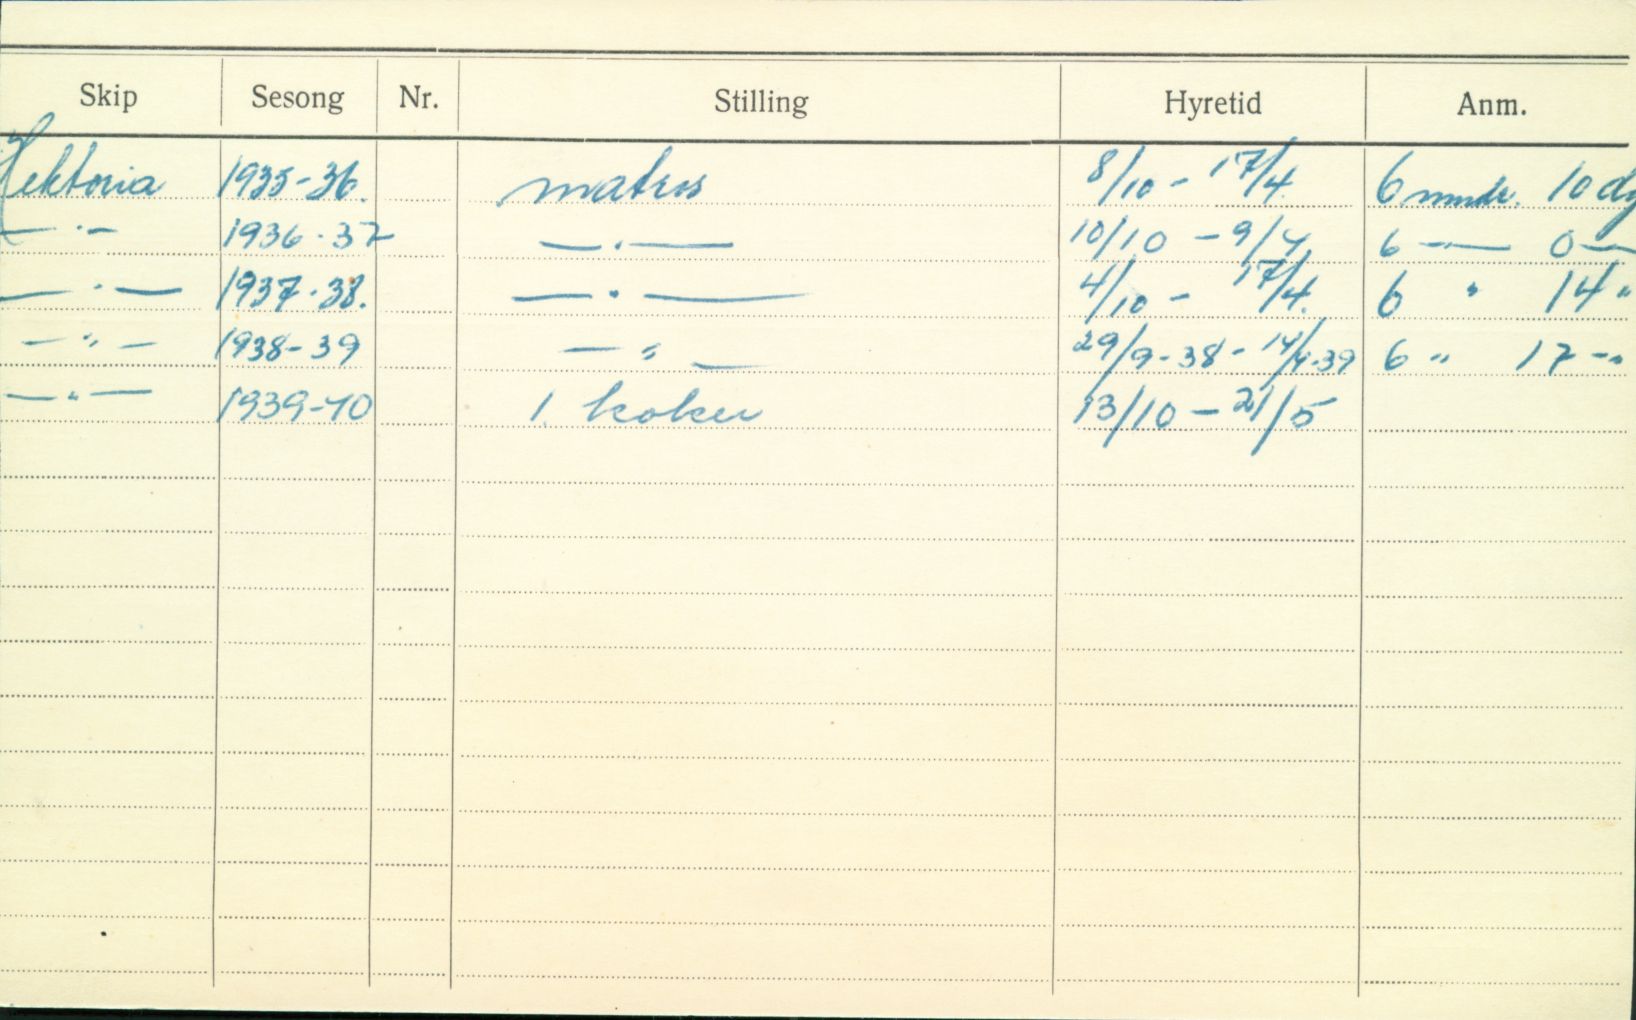 Skip Sesong Nr. Stilling Hyretid Anm.
Hektoria 1935-36. matros 8/10 - 17/4. 6 mndr. 10 dg
— · — 1936-37 — · — 10/10 - 9/4. 6 — 0 —
— · — 1937-38. — · — 4/10 - 17/4. 6 " 14 "
— " — 1938-39 — " — 29/9-38 - 14/4-39 6 " 17 — "
— " — 1939-40 1. koker 13/10 - 21/5